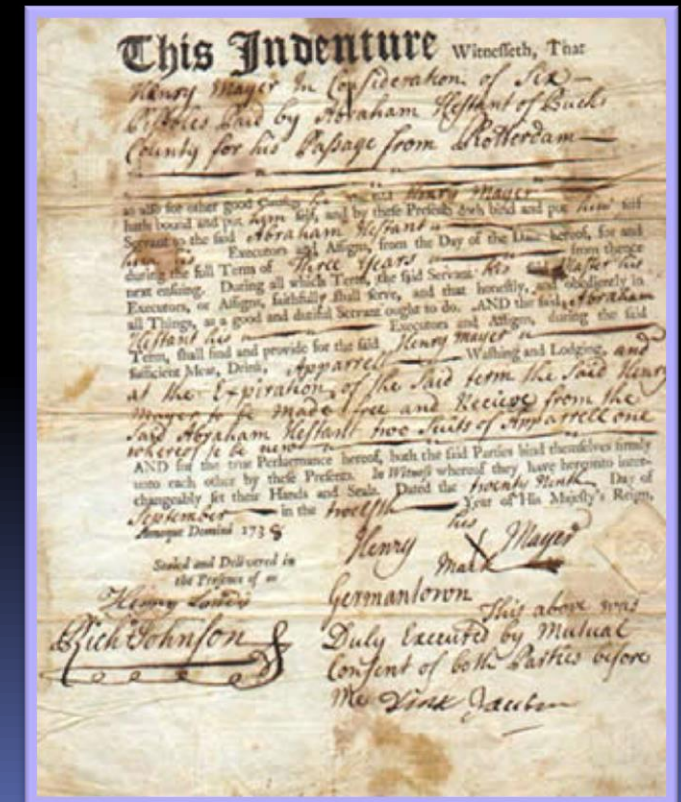 This Indenture Witnesseth, That
Henry Mayer In Consideration of Six
Pistoles Paid by Abraham Hestant of Bucks
County for his Passage from Rotterdam
as also for other good he the said Henry Mayer
hath bound and put him self, and by these Presents doth bind and put him self
Servant to the said Abraham Hestant
his Executors and Assigns, from the Day of the Date hereof, for and
during the full Term of Three Years from thence
next ensuing. During all which Term, the said Servant his said Master his
Executors, or Assigns, faithfully shall serve, and that honestly, and obediently in
all Things, as a good and dutiful Servant ought to do. AND the said Abraham
Hestant his Executors and Assigns, during the said
Term, shall find and provide for the said Henry Mayer
sufficient Meat, Drink, Apparrell Washing and Lodging, and
at the Expiration of the Said term the Said Henry
Mayer to be made free and Recieve from the
Said Abraham Hestant two Suits of Apparrell one
whereof to be new
AND for the true Performance hereof, both the said Parties bind themselves firmly
unto each other by these Presents. In Witness whereof they have hereunto inter-
changeably set their Hands and Seals. Dated the twenty Ninth Day of
September in the twelfth Year of His Majesty's Reign,
Annoque Domini 1738
his
Henry X Mayer
Mark
Sealed and Delivered in
the Presence of us
Henry
Richd Johnson
Germantown
This above was
Duly Executed by Mutual
Consent of both Parties before
Me